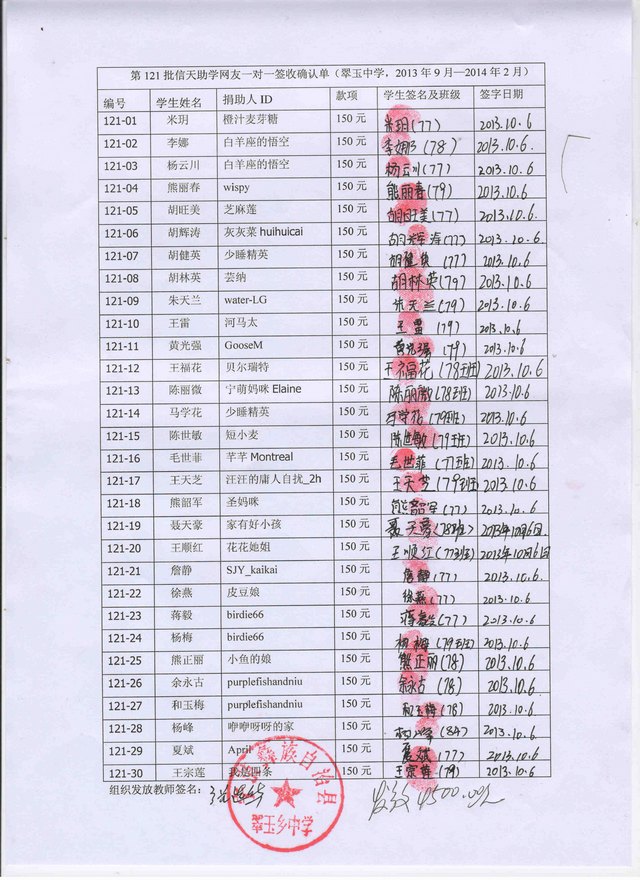 第 121 批信天助学网友一对一签收确认单（翠玉中学，2013 年 9 月—2014 年 2 月）
编号 学生姓名 捐助人 ID 款项 学生签名及班级 签字日期
121-01 米玥 橙汁麦芽糖 150 元 米玥(77) 2013.10.6
121-02 李娜 白羊座的悟空 150 元 李娜(78) 2013.10.6.
121-03 杨云川 白羊座的悟空 150 元 杨云川(77) 2013.10.6
121-04 熊丽春 wispy 150 元 熊丽春(79) 2013.10.6
121-05 胡旺美 芝麻莲 150 元 胡旺美(77) 2013.10.6.
121-06 胡辉涛 灰灰菜 huihuicai 150 元 胡辉涛(77) 2013.10.6.
121-07 胡健英 少睡精英 150 元 胡健英(77) 2013.10.6
121-08 胡林英 芸纳 150 元 胡林英(79) 2013.10.6
121-09 朱天兰 water-LG 150 元 朱天兰(79) 2013.10.6
121-10 王雷 河马太 150 元 王雷(79) 2013.10.6
121-11 黄光强 GooseM 150 元 黄光强(79) 2013.10.6
121-12 王福花 贝尔瑞特 150 元 王福花(78班) 2013.10.6
121-13 陈丽微 宁萌妈咪 Elaine 150 元 陈丽微(78班) 2013.10.6
121-14 马学花 少睡精英 150 元 马学花(79班) 2013.10.6
121-15 陈世敏 短小麦 150 元 陈世敏(79班) 2013.10.6
121-16 毛世菲 芊芊 Montreal 150 元 毛世菲(77班) 2013.10.6
121-17 王天芝 汪汪的庸人自扰_2h 150 元 王天芝(79班) 2013.10.6
121-18 熊韶军 圣妈咪 150 元 熊韶军(77) 2013.10.6
121-19 聂天豪 家有好小孩 150 元 聂天豪(78班) 2013年10月6日
121-20 王顺红 花花她姐 150 元 王顺红(77班) 2013年10月6日
121-21 詹静 SJY_kaikai 150 元 詹静(77) 2013.10.6.
121-22 徐燕 皮豆娘 150 元 徐燕(77) 2013.10.6
121-23 蒋毅 birdie66 150 元 蒋毅(77) 2013.10.6
121-24 杨梅 birdie66 150 元 杨梅(79班) 2013.10.6
121-25 熊正丽 小鱼的娘 150 元 熊正丽(78) 2013.10.6
121-26 余永古 purplefishandniu 150 元 余永古(78) 2013.10.6
121-27 和玉梅 purplefishandniu 150 元 和玉梅(78) 2013.10.6
121-28 杨峰 咿咿呀呀的家 150 元 杨峰(84) 2013.10.6
121-29 夏斌 April 150 元 夏斌(77) 2013.10.6
121-30 王宗莲 我是四条 150 元 王宗莲(79) 2013.10.6
组织发放教师签名： 发放4500.00元
彝族自治县
翠玉乡中学